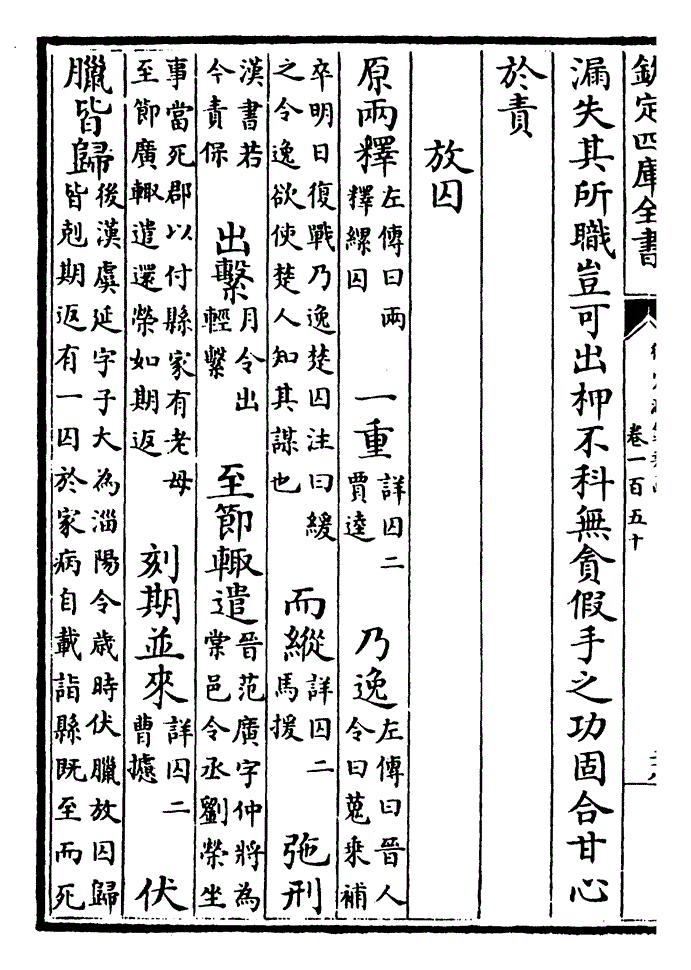 欽定四庫全書
卷一百五十
漏失其所職豈可出柙不科無貪假手之功固合甘心
於責
放囚
原兩釋左傳曰兩釋縲囚 一重詳囚二賈逵 乃逸左傳曰晉人令曰蒐乗補
卒明日復戰乃逸楚囚注曰緩之令逸欲使楚人知其謀也 而縱詳囚二馬援 弛刑
漢書若今責保 出繫月令出輕繫 至節輒遣晉范廣字仲將為棠邑令丞劉榮坐
事當死郡以付縣家有老母至節廣輒遣還榮如期返 刻期並來詳囚二曹攄 伏
臘皆歸後漢虞延字子大為淄陽令歲時伏臘放囚歸皆剋期返有一囚於家病自載詣縣既至而死